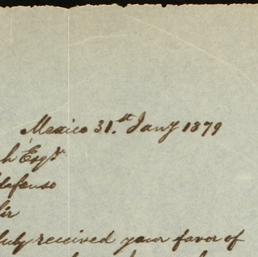 Mexico 31.st Jany 1879
h Esqr
defonso
Sir
duly received your favor of